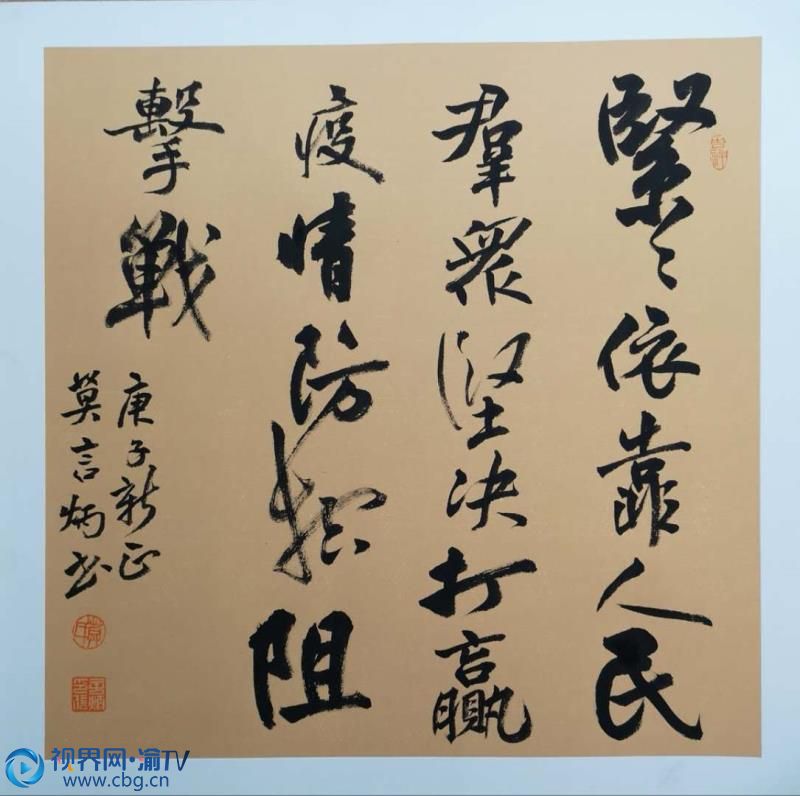 緊〻依靠人民
羣衆堅决打贏
疫情防控阻
擊戰
庚子新正
莫言炳书
视界网·渝TV
www.cbg.cn